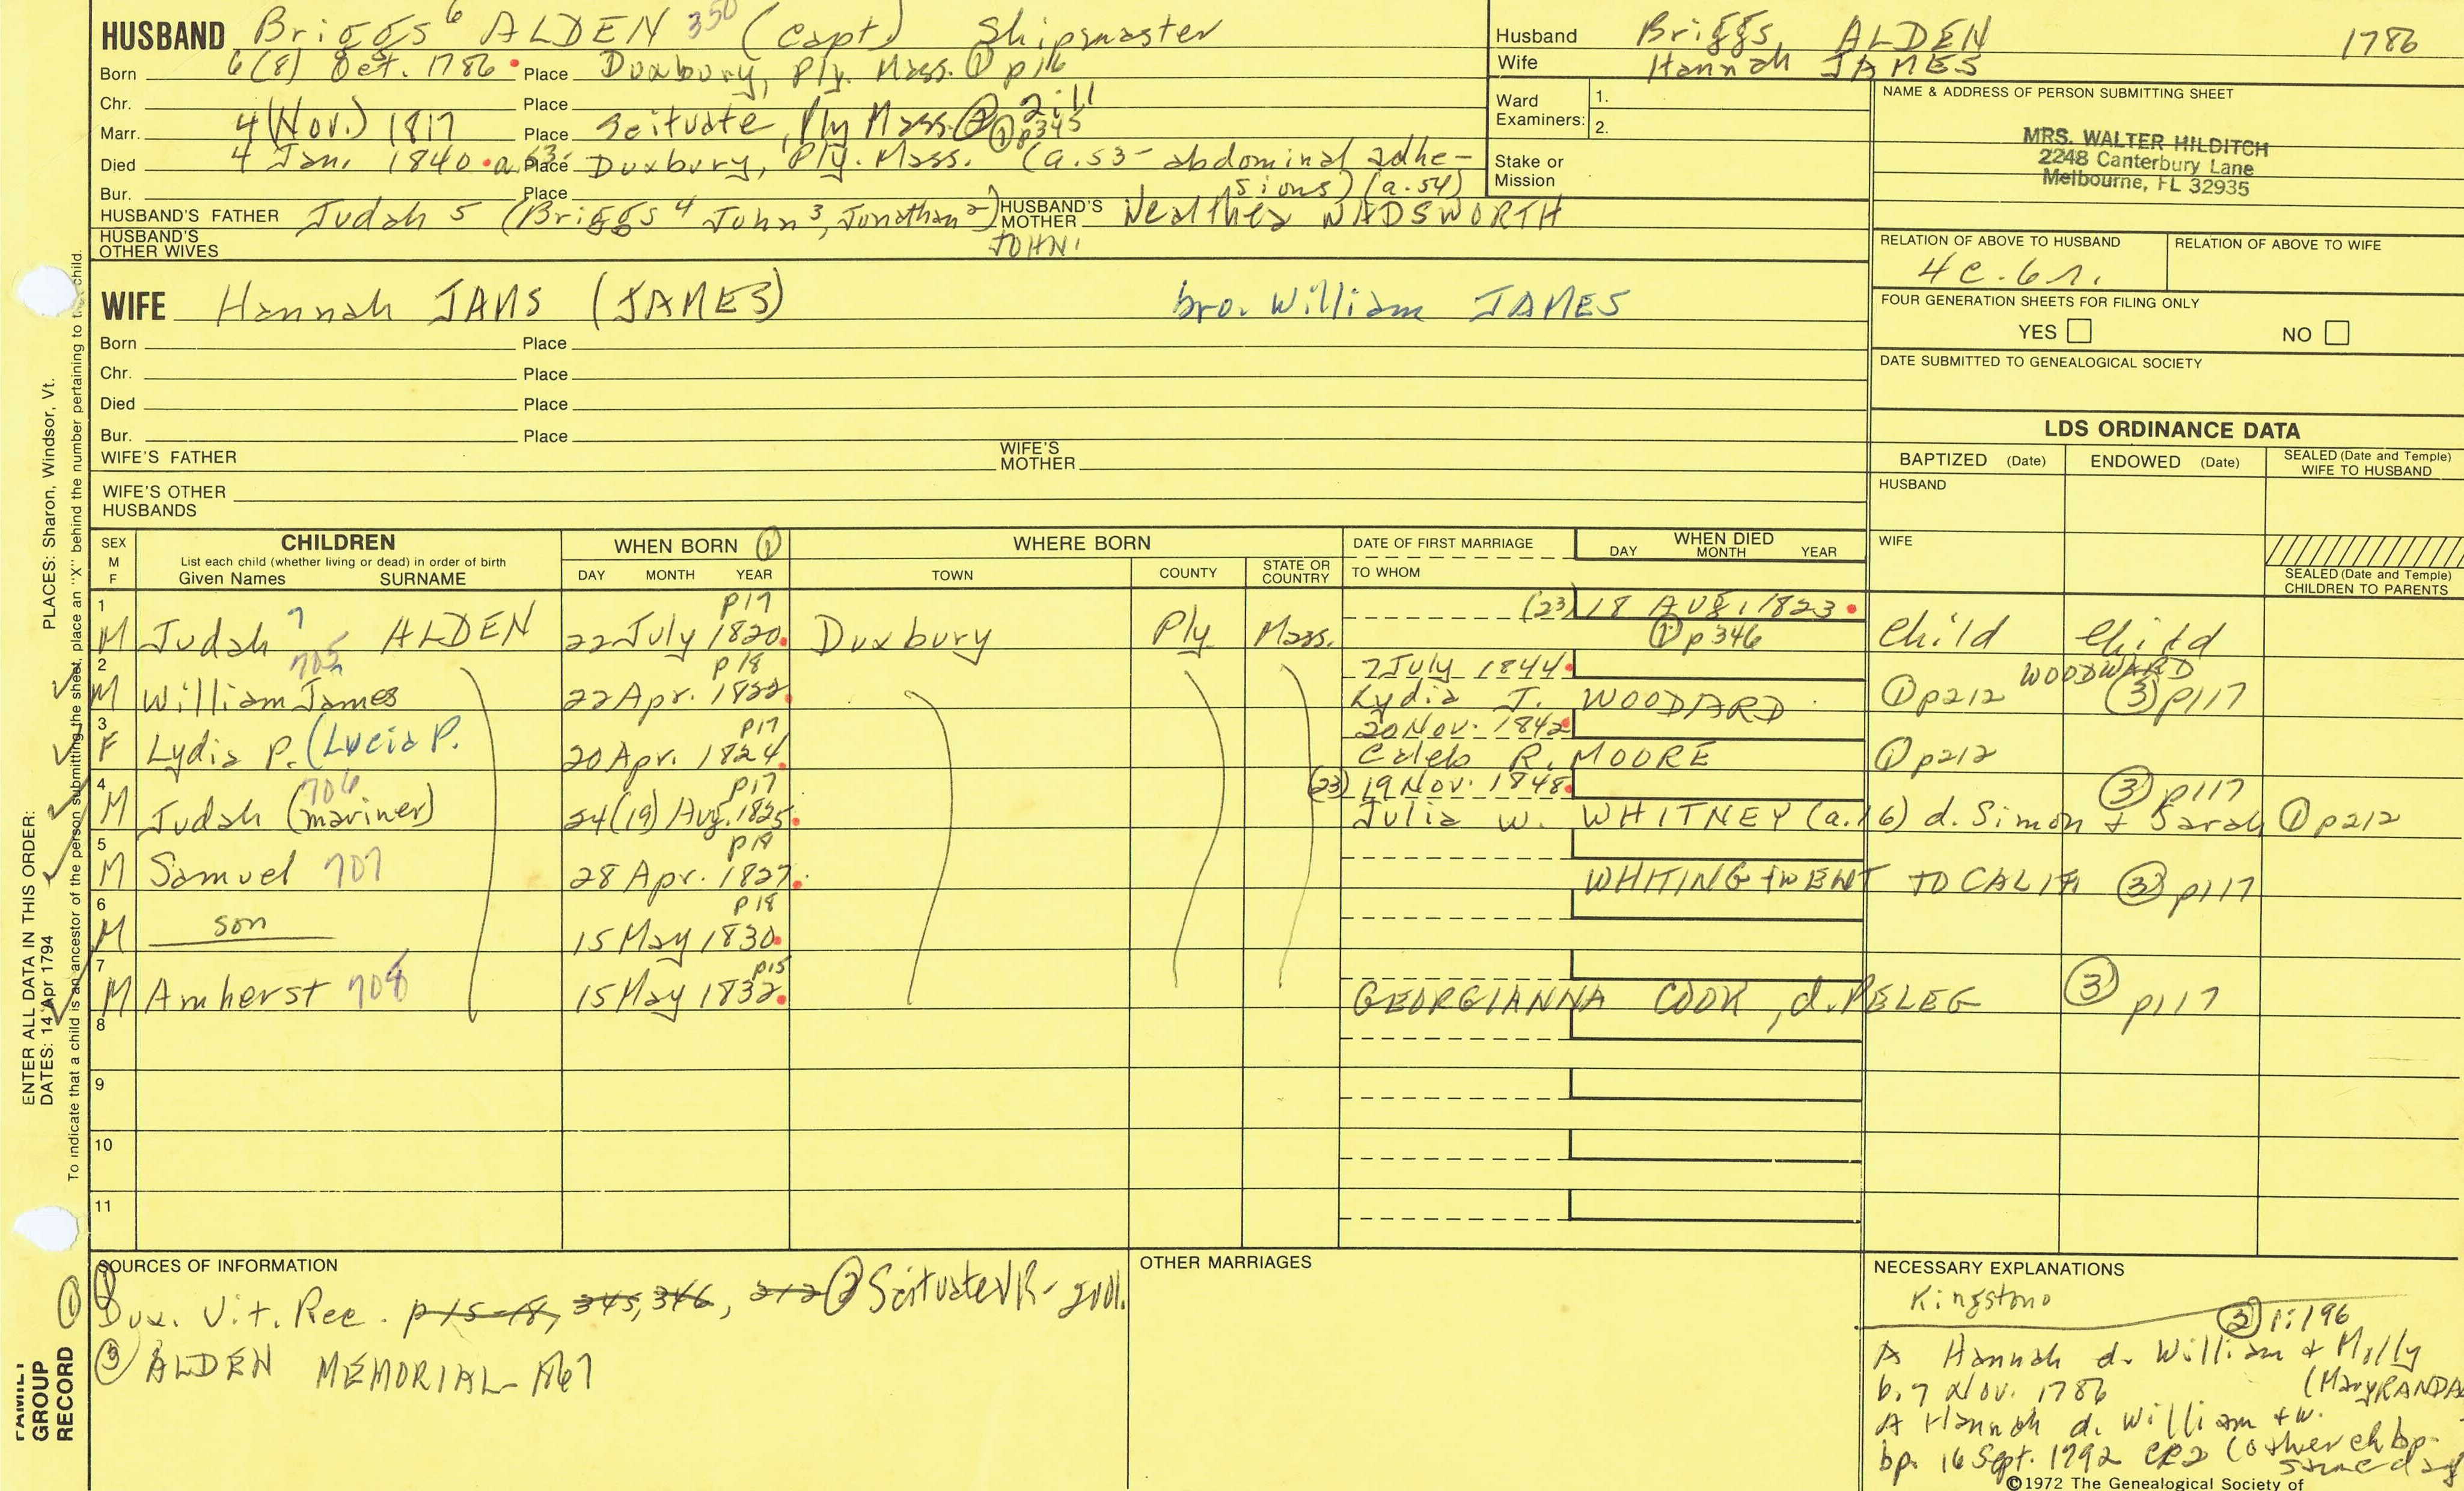 HUSBAND Briggs 6 ALDEN 350 (Capt) Shipmaster
Born 6(8) Oct. 1786 Place Duxbury, Ply. Mass. ① p16
Chr. Place 2:11
Marr. 4 (Nov.) 1817 Place Scituate, Ply Mass. ② ① p345
Died 4 Jan. 1840 a.53 Place Duxbury, Ply. Mass. (a.53- abdominal adhe-
Bur. Place sions) (a.54)
HUSBAND'S FATHER Judah 5 (Briggs 4 John 3, Jonathan 2) HUSBAND'S MOTHER Wealthea WADSWORTH
HUSBAND'S OTHER WIVES JOHN 1
Husband Briggs, ALDEN 1786
Wife Hannah JAMES
Ward Examiners: 1.
2.
Stake or Mission
NAME & ADDRESS OF PERSON SUBMITTING SHEET
MRS. WALTER HILDITCH
2248 Canterbury Lane
Melbourne, FL 32935
RELATION OF ABOVE TO HUSBAND RELATION OF ABOVE TO WIFE
4c.6r.
FOUR GENERATION SHEETS FOR FILING ONLY
YES NO
DATE SUBMITTED TO GENEALOGICAL SOCIETY
WIFE Hannah JAMS (JAMES) bro. William JAMES
Born Place
Chr. Place
Died Place
Bur. Place
WIFE'S FATHER WIFE'S MOTHER
WIFE'S OTHER HUSBANDS
LDS ORDINANCE DATA
BAPTIZED (Date) ENDOWED (Date) SEALED (Date and Temple) WIFE TO HUSBAND
HUSBAND
WIFE
SEALED (Date and Temple) CHILDREN TO PARENTS
SEX M F CHILDREN List each child (whether living or dead) in order of birth Given Names SURNAME
WHEN BORN ① DAY MONTH YEAR
WHERE BORN TOWN COUNTY STATE OR COUNTRY
DATE OF FIRST MARRIAGE TO WHOM
WHEN DIED DAY MONTH YEAR
1 p17 (23) 18 AUG. 1823
M Judah 7 ALDEN 22 July 1820 Duxbury Ply Mass. ① p346 Child Child
2 705 p18 7 July 1844 WOODWARD
M William James 22 Apr. 1822 Lydia J. WOODARD ① p212 ③ p117
3 p17 20 Nov. 1842
F Lydia P. (Lucia P. 20 Apr. 1824 Caleb R. MOORE ① p212
4 706 p17 (23) 19 Nov. 1848 ③ p117
M Judah (mariner) 24(19) Aug. 1825 Julia W. WHITNEY (a.16) d. Simon + Sarah ① p212
5 p18
M Samuel 707 28 Apr. 1827 WHITING + WENT TO CALIF ③ p117
6 p18
M son 15 May 1830
7 p15
M Amherst 708 15 May 1832 GEORGIANNA COOK, d. PELEG ③ p117
8
9
10
11
SOURCES OF INFORMATION
① Dux. Vit. Rec. p15-18, 345, 346, 212 ② Scituate VR-
③ ALDEN MEMORIAL- 1867
OTHER MARRIAGES
NECESSARY EXPLANATIONS
Kingston
② 1:196
A Hannah d. William & Molly
b. 7 Nov. 1786 (Mary RANDA
A Hannah d. William + w.
bp. 16 Sept. 1792 CR2 (other ch bp.
same day
©1972 The Genealogical Society of
ENTER ALL DATA IN THIS ORDER:
DATES: 14 Apr 1794 PLACES: Sharon, Windsor, Vt.
To indicate that a child is an ancestor of the person submitting the sheet, place an "X" behind the number pertaining to the child.
FAMILY
GROUP
RECORD ①